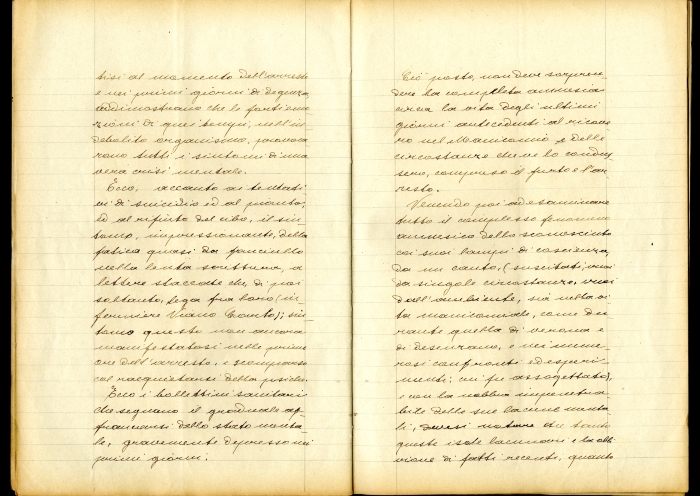 tisi al momento dell'arresto
e nei primi giorni di degenza
addimostrano che le forti emo-
zioni di quei tempi, nell'in-
debolito organismo, provoca-
rono tutti i sintomi di una
vera crisi mentale.
Ecco, accanto ai tentati-
vi di suicidio ed al pianto,
ed al rifiuto del cibo, il sin-
tomo, impressionante, della
fatica quasi da fanciullo
nella lenta scrittura, a
lettere staccate che, di poi
soltanto, lega fra loro (in-
fermiere Viano); sin-
tomo questo non ancora
manifestatosi nelle prime
ore dell'arresto, e scomparso
col racquistarsi della psiche.
Ecco i bollettini sanitari
che segnano il graduale af-
francarsi dello stato menta-
le, gravemente depresso nei
primi giorni.
Ciò posto, non deve sorpren-
dere la completa amnesia
circa la vita degli ultimi
giorni antecedenti al ricove-
ro nel Manicomio, e delle
circostanze che ve lo condus-
sero, compreso il furto e l'ar-
resto.
Venendo poi ad esaminare
tutto il complesso fenomeno
amnesico dello sconosciuto
coi suoi lampi di coscienza,
da un canto, (suscitati, vuoi
da singole circostanze, vuoi
dall'ambiente, sia nella vi-
ta manicomiale, come du-
rante quella di Verona e
di Desenzano, e nei nume-
rosi confronti ed esperi-
menti, cui fu assoggettato),
e con la nebbia impenetra-
bile delle sue lacune menta-
li, devesi notare che tanto
queste isole lacunari e la obli-
vione di fatti recenti, quanto